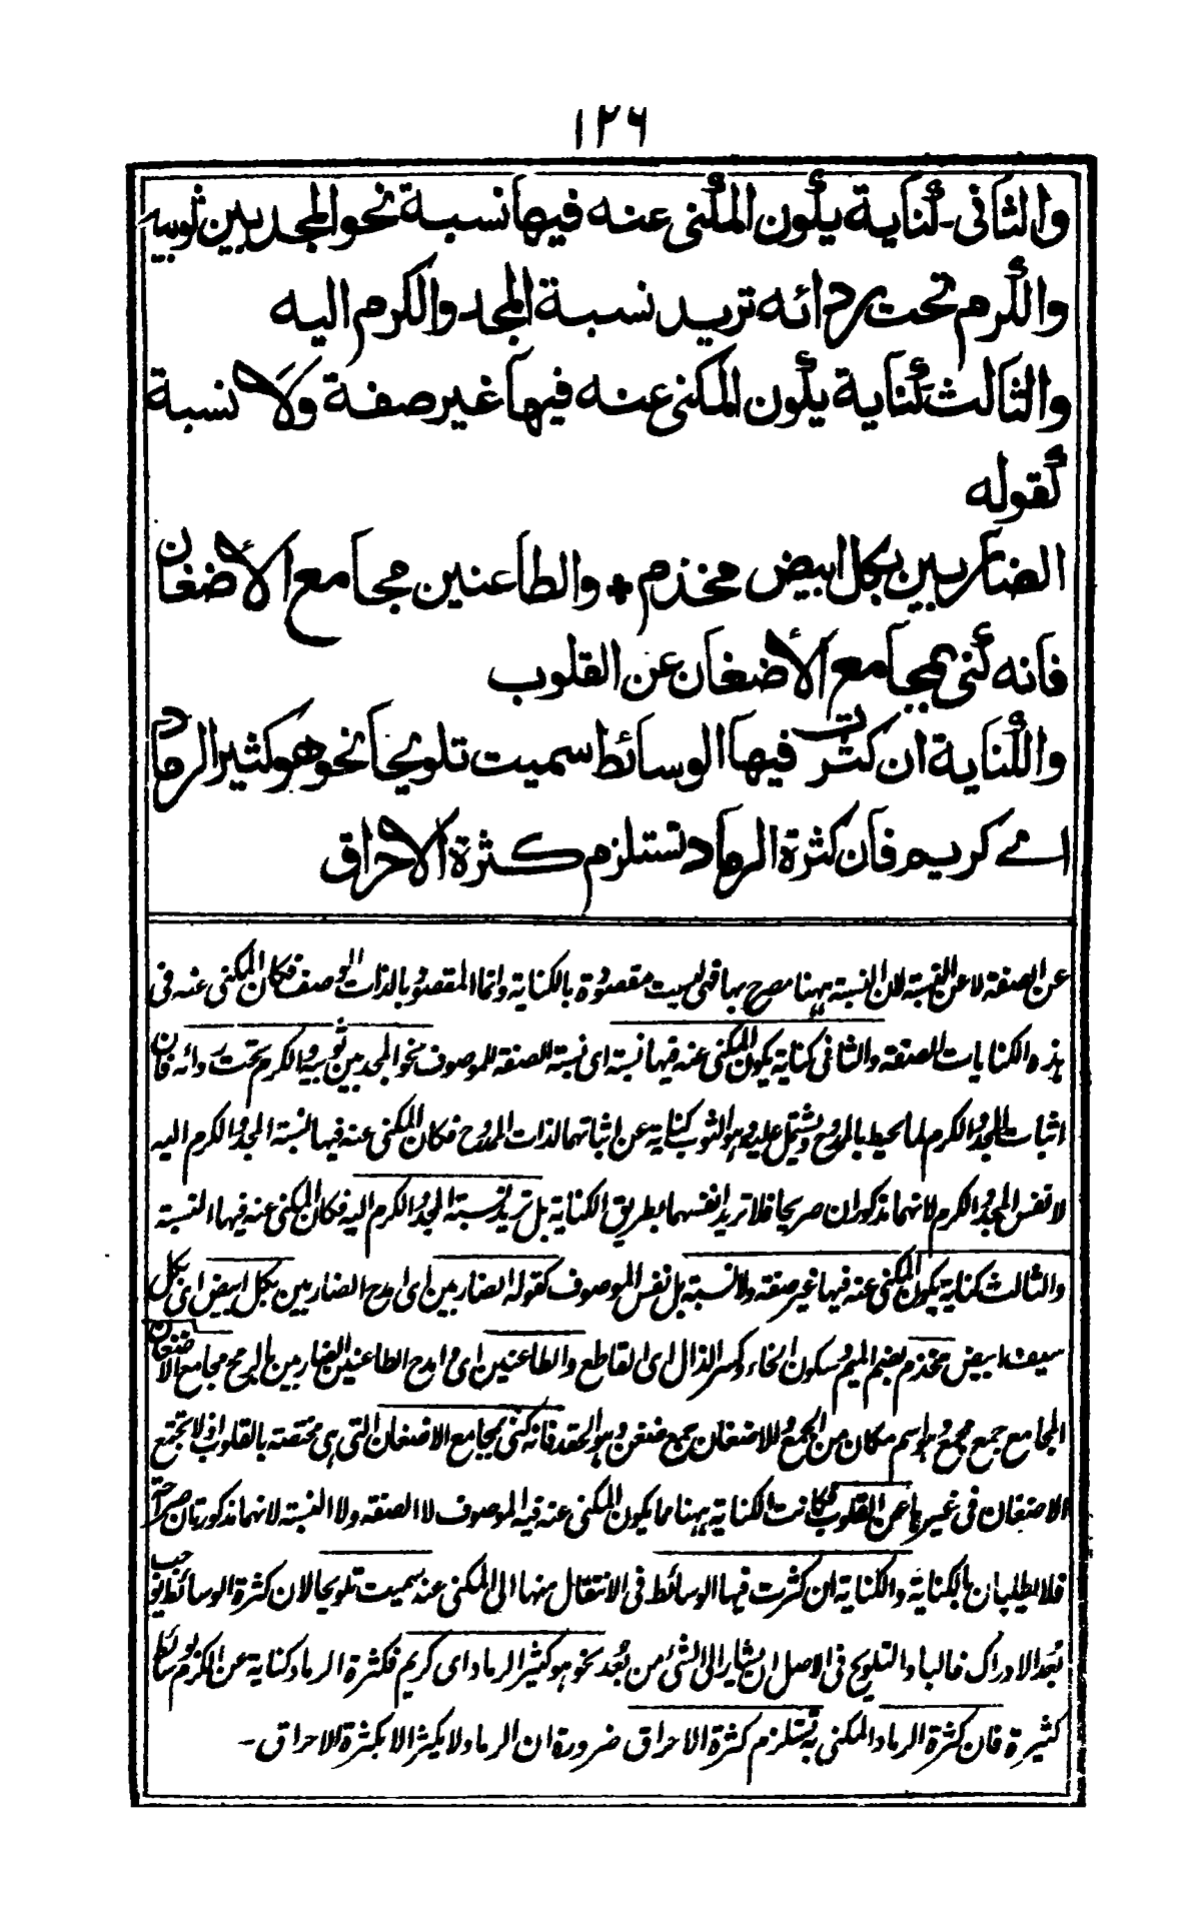 ١٢٦
والثانى۔ كناية يكون المكنى عنه فيها نسبة نحو المجد بين ثوبيه
والكرم تحت ردائه تريد نسبة المجد والكرم اليه
والثالث كناية يكون المكنى عنه فيها غير صفة ولا نسبة
كقوله
الضاربين بكل ابيض مخذم + والطاعنين مجامع الأضغان
فانه كنى بمجامع الأضغان عن القلوب
والكناية ان كثرت فيها الوسائط سميت تلويحا نحو هو كثير الرماد
اے كريم فان كثرة الرماد تستلزم كثرة الاحراق
عن الصفة لا عن النسبة لان النسبة ههنا مصرح بها فهى ليست مقصودة بالكناية وانما المقصود بالذات الوصف فكان المكنى عنه فى
هذه الكنايات الصفة والثانى كناية يكون المكنى عنه فيها نسبة اى نسبة الصفة للموصوف نحو المجد بين ثوبيه والكرم تحت ردائه فان
اثبات المجد والكرم لما يحيط بالممدوح ويشتمل عليه وهو الثوب كناية عن اثباتهما لذات الممدوح فكان المكنى عنه فيها نسبة المجد والكرم اليه
لا نفس المجد والكرم لانهما مذكوران صريحا فلا تريد انفسهما بطريق الكناية بل تريد نسبة المجد والكرم اليه فكان المكنى عنه فيها النسبة
والثالث كناية يكون المكنى عنه فيها غير صفة ولا نسبة بل نفس الموصوف كقوله الضاربين اى امدح الضاربين بكل ابيض اى بكل
سيف ابيض مخذم بضم الميم وسكون الخاء وكسر الذال اى القاطع والطاعنين اى وامدح الطاعنين الضاربين بالرمح مجامع الاضغان
المجامع جمع مجمع وهو اسم مكان من الجمع والاضغان جمع ضغن وهو الحقد فانه كنى بمجامع الاضغان التى هى مختصة بالقلوب اذ لا تجتمع
الاضغان فى غيرها عن القلوب فكانت الكناية ههنا مما يكون المكنى عنه فيه الموصوف لا الصفة ولا النسبة لانهما مذكورتان صراحة
فلا تطلبان بالكناية والكناية ان كثرت فيها الوسائط فى الانتقال منها الى المكنى عنه سميت تلويحا لان كثرة الوسائط توجب
بُعد الادراك غالبا والتلويح فى الاصل ان يشار الى الشئ من بُعد نحو هو كثير الرماد اى كريم فكثرة الرماد كناية عن الكرم بوسائط
كثيرة فان كثرة الرماد المكنى به تستلزم كثرة الاحراق ضرورة ان الرماد لا يكثر الا بكثرة الاحراق۔